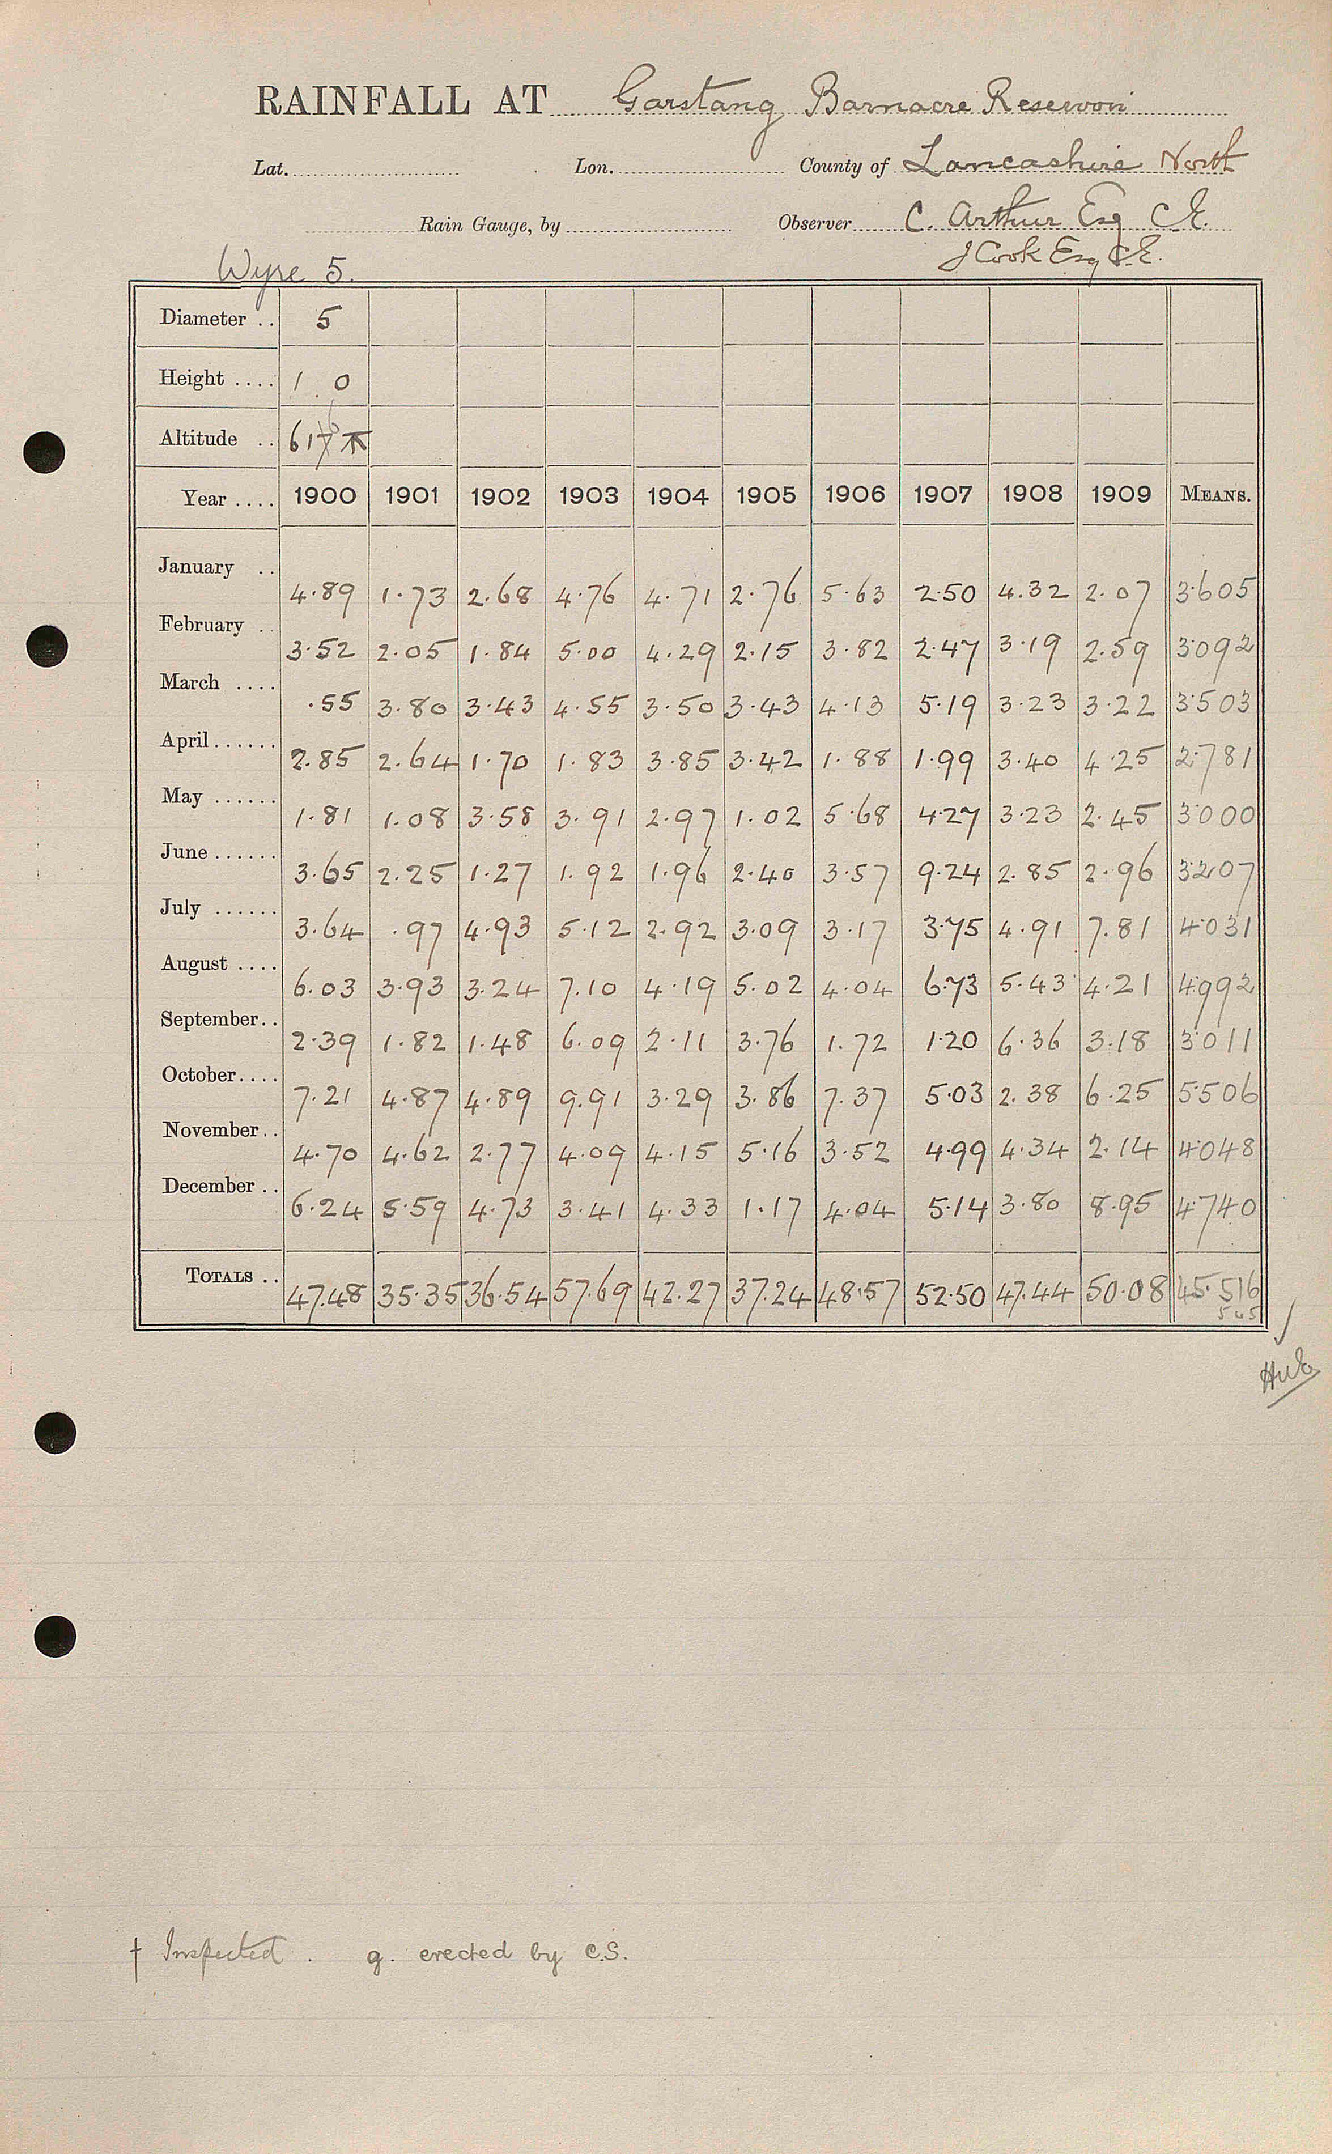 RAINFALL AT Garstang Barnacre Reservoir
Lat. Lon. County of Lancashire North
Rain Gauge, by Observer C. Arthur Esq C.E.
J Cook Esq C.E.
Wyre 5.
Diameter .. 5
Height .... 1 0
Altitude .. 617
Year .... 1900 1901 1902 1903 1904 1905 1906 1907 1908 1909 MEANS.
January .. 4.89 1.73 2.68 4.76 4.71 2.76 5.63 2.50 4.32 2.07 3.605
February .. 3.52 2.05 1.84 5.00 4.29 2.15 3.82 2.47 3.19 2.59 3.092
March .... .55 3.80 3.43 4.55 3.50 3.43 4.13 5.19 3.23 3.22 3.503
April...... 2.85 2.64 1.70 1.83 3.85 3.42 1.88 1.99 3.40 4.25 2.781
May ...... 1.81 1.08 3.58 3.91 2.97 1.02 5.68 4.27 3.23 2.45 3.000
June...... 3.65 2.25 1.27 1.92 1.96 2.40 3.57 9.24 2.85 2.96 3.207
July ...... 3.64 .97 4.93 5.12 2.92 3.09 3.17 3.75 4.91 7.81 4.031
August .... 6.03 3.93 3.24 7.10 4.19 5.02 4.04 6.73 5.43 4.21 4.992
September.. 2.39 1.82 1.48 6.09 2.11 3.76 1.72 1.20 6.36 3.18 3.011
October.... 7.21 4.87 4.89 9.91 3.29 3.86 7.37 5.03 2.38 6.25 5.506
November.. 4.70 4.62 2.77 4.09 4.15 5.16 3.52 4.99 4.34 2.14 4.048
December .. 6.24 5.59 4.73 3.41 4.33 1.17 4.04 5.14 3.80 8.95 4.740
TOTALS .. 47.48 35.35 36.54 57.69 42.27 37.24 48.57 52.50 47.44 50.08 45.516
† Inspected. g. erected by C.S.